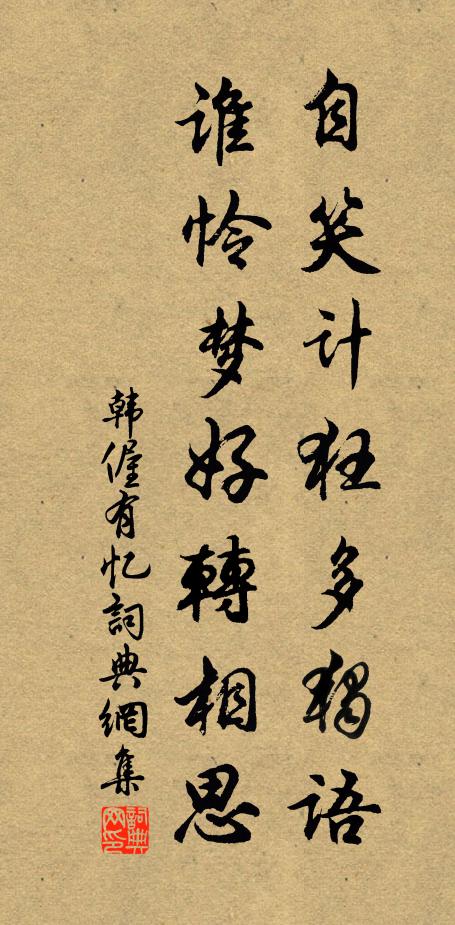 自笑计狂多獨語
谁怜梦好轉相思
韩偓有忆詞典網集
詞典网印